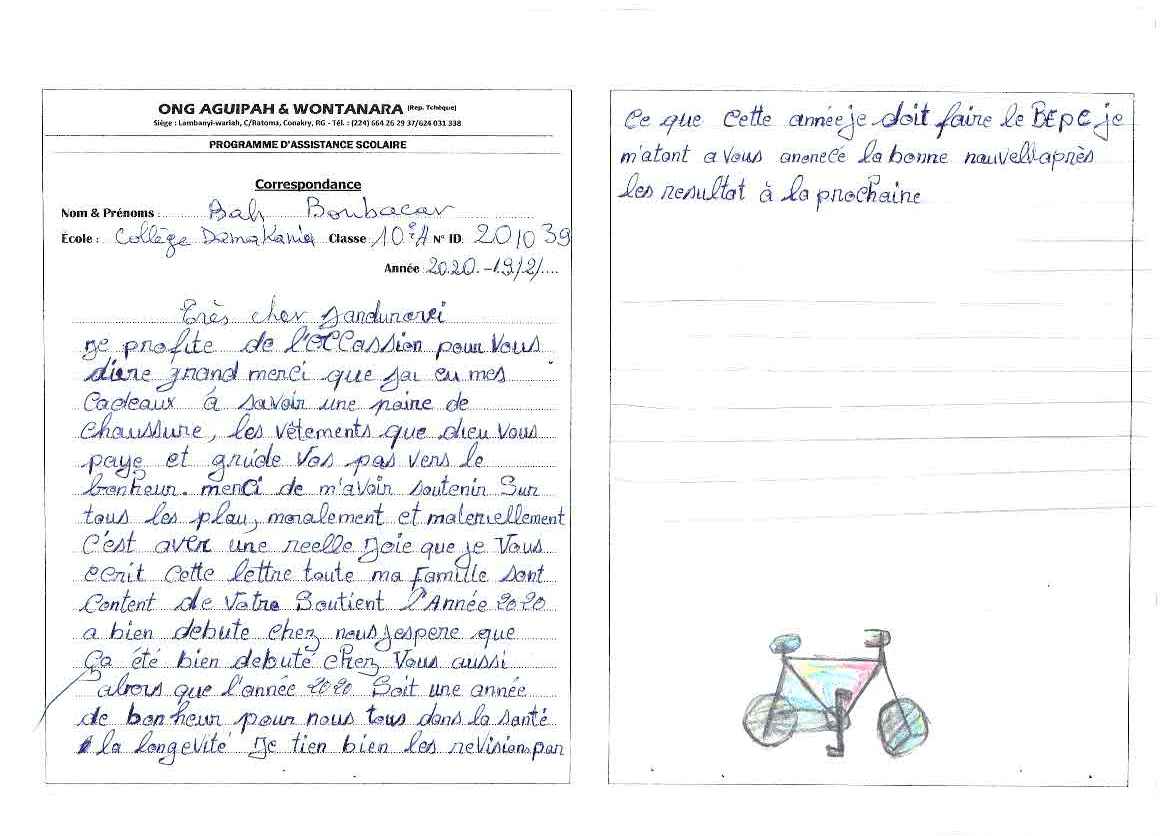 ONG AGUIPAH & WONTANARA (Rep. Tchèque)
Siège : Lambanyi-wariah, C/Ratoma, Conakry, RG - Tél. : (224) 664 26 29 37/624 031 338
PROGRAMME D'ASSISTANCE SCOLAIRE
Correspondance
Nom & Prénoms : Bah Boubacar
École : Collège Damakania Classe 10e A N° ID. 201039
Année 2020.-19/2/....
très cher
je profite de l'occassion pour vous
diere grand merci que j'ai eu mes
cadeaux à savoir une paire de
chaussure, les vêtements que dieu vous
paye et gruide vos pas vers le
bonheur. merci de m'avoir soutenir sur
tous les plau, moralement et materiellement
C'est avec une reelle joie que je vous
ecrit cette lettre toute ma famille sont
content de votre soutient l'Année 2020
a bien debute chez nous jespere que
ça été bien debuté chez vous aussi
alors que l'année 2020 soit une année
de bonheur pour nous tous dans la santé
la longevité je tien bien les revision par
ce que cette année je doit faire le BEPC je
m'atant a vous anonecé la bonne nouvell après
les resultat à la prochaine